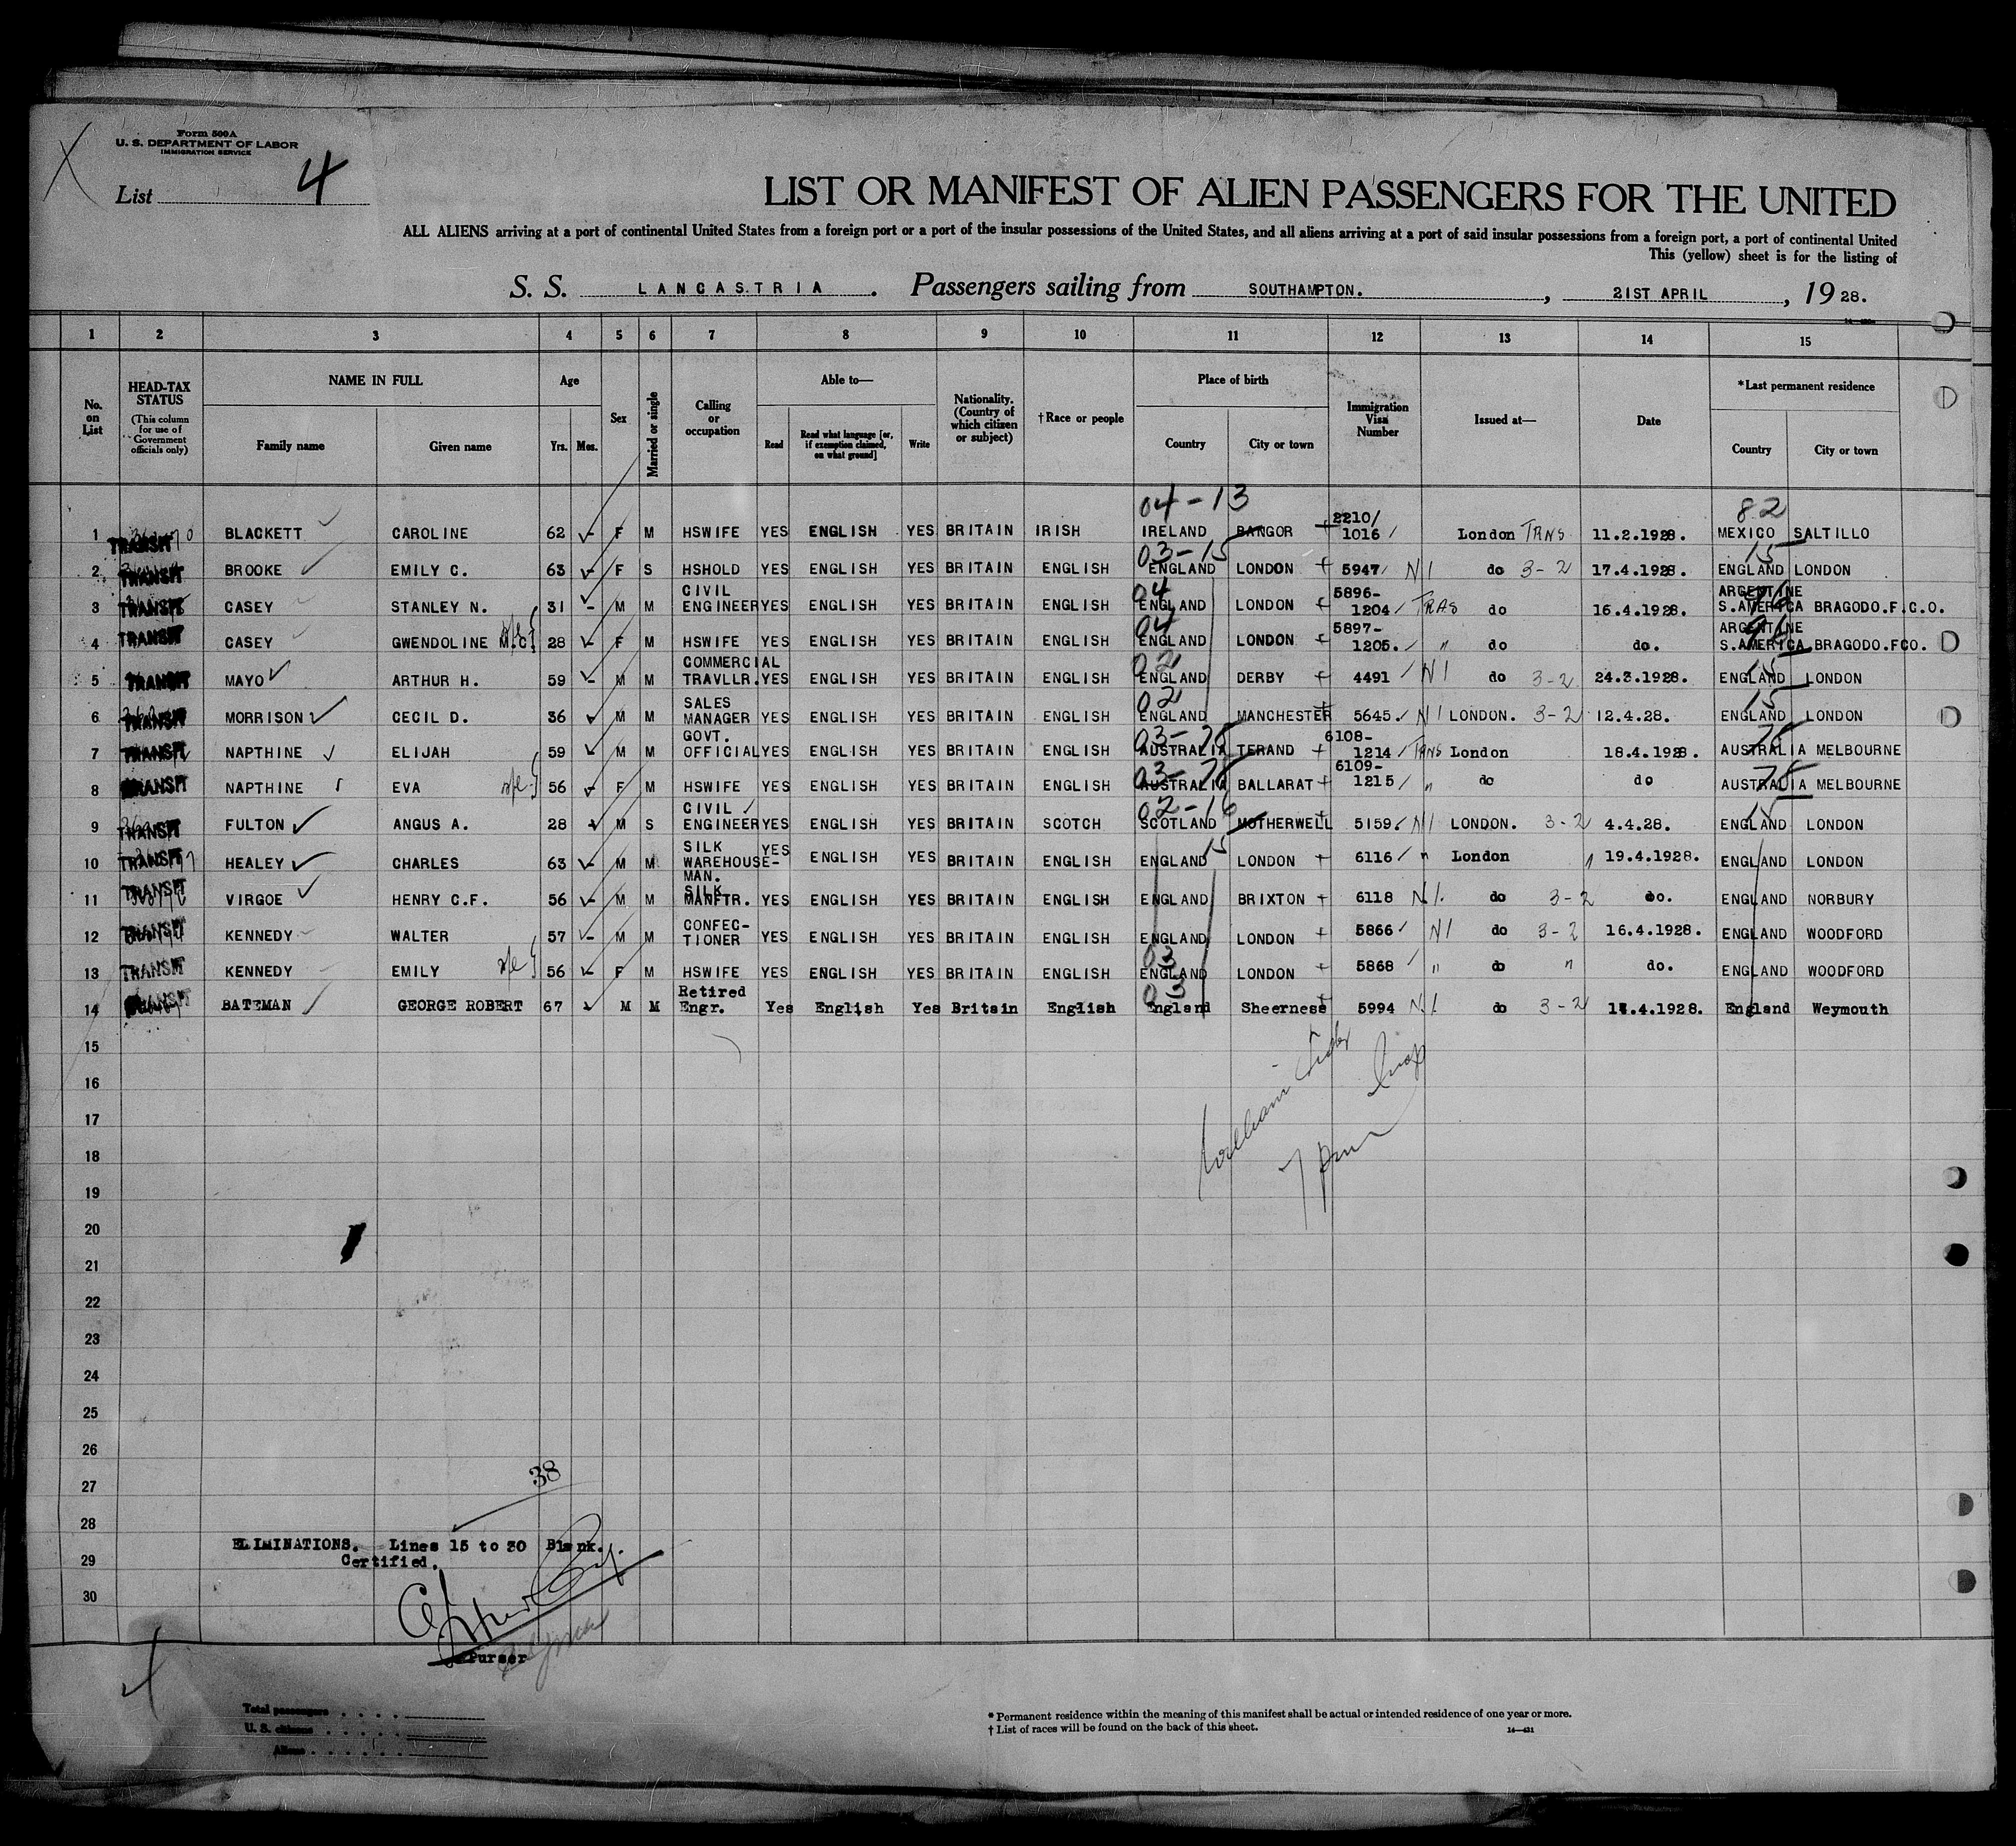 Form 500A
U. S. DEPARTMENT OF LABOR
IMMIGRATION SERVICE
List 4
LIST OR MANIFEST OF ALIEN PASSENGERS FOR THE UNITED
ALL ALIENS arriving at a port of continental United States from a foreign port or a port of the insular possessions of the United States, and all aliens arriving at a port of said insular possessions from a foreign port, a port of continental United
This (yellow) sheet is for the listing of
S. S. LANCASTRIA. Passengers sailing from SOUTHAMPTON., 21ST APRIL, 19 28.
1 2 3 4 5 6 7 8 9 10 11 12 13 14 15
No. on List
HEAD-TAX STATUS (This column for use of Government officials only)
NAME IN FULL Family name Given name
Age Yrs. Mos.
Sex
Married or single
Calling or occupation
Able to— Read Read what language [or, if exemption claimed, on what ground] Write
Nationality. (Country of which citizen or subject)
†Race or people
Place of birth Country City or town
Immigration Visa Number
Issued at—
Date
*Last permanent residence Country City or town
04-13 82
1 TRANSIT BLACKETT CAROLINE 62 F M HSWIFE YES ENGLISH YES BRITAIN IRISH IRELAND BANGOR 2210/ 1016 London TRNS 11.2.1928. MEXICO SALTILLO
03-15 15
2 TRANSIT BROOKE EMILY C. 63 F S HSHOLD YES ENGLISH YES BRITAIN ENGLISH ENGLAND LONDON 5947 N I do 3-2 17.4.1928. ENGLAND LONDON
3 TRANSIT CASEY STANLEY N. 31 M M CIVIL ENGINEER YES ENGLISH YES BRITAIN ENGLISH 04 ENGLAND LONDON 5896- 1204 TRAS do 16.4.1928. ARGENTINE S.AMERICA BRAGODO.F.C.O.
4 TRANSIT CASEY GWENDOLINE M.C. 28 F M HSWIFE YES ENGLISH YES BRITAIN ENGLISH 04 ENGLAND LONDON 5897- 1205. " do do. ARGENTANE S.AMERICA BRAGODO.FCO.
5 TRANSIT MAYO ARTHUR H. 59 M M COMMERCIAL TRAVLLR. YES ENGLISH YES BRITAIN ENGLISH 02 ENGLAND DERBY 4491 N I do 3-2 24.3.1928. 15 ENGLAND LONDON
6 TRANSIT MORRISON CECIL D. 36 M M SALES MANAGER YES ENGLISH YES BRITAIN ENGLISH 02 ENGLAND MANCHESTER 5645. N I LONDON. 3-2 12.4.28. 15 ENGLAND LONDON
7 TRANSIT NAPTHINE ELIJAH 59 M M GOVT. OFFICIAL YES ENGLISH YES BRITAIN ENGLISH 03-78 AUSTRALIA TERAND 6108- 1214 TRNS London 18.4.1928. 78 AUSTRALIA MELBOURNE
8 TRANSIT NAPTHINE EVA 56 F M HSWIFE YES ENGLISH YES BRITAIN ENGLISH 03-78 AUSTRALIA BALLARAT 6109- 1215 " do do 78 AUSTRALIA MELBOURNE
9 TRANSIT FULTON ANGUS A. 28 M S CIVIL ENGINEER YES ENGLISH YES BRITAIN SCOTCH 02-16 SCOTLAND MOTHERWELL 5159. N I LONDON. 3-2 4.4.28. 15 ENGLAND LONDON
10 TRANSIT HEALEY CHARLES 63 M M SILK WAREHOUSE-MAN. YES ENGLISH YES BRITAIN ENGLISH ENGLAND 15 LONDON 6116 " London " 19.4.1928. ENGLAND LONDON
11 TRANSIT VIRGOE HENRY C.F. 56 M M SILK MANFTR. YES ENGLISH YES BRITAIN ENGLISH ENGLAND BRIXTON 6118 N I. do 3-2 do. ENGLAND NORBURY
12 TRANSIT KENNEDY WALTER 57 M M CONFEC- TIONER YES ENGLISH YES BRITAIN ENGLISH ENGLAND LONDON 5866 N I do 3-2 16.4.1928. ENGLAND WOODFORD
13 TRANSIT KENNEDY EMILY 56 F M HSWIFE YES ENGLISH YES BRITAIN ENGLISH 03 ENGLAND LONDON 5868 " do " do. ENGLAND WOODFORD
14 TRANSIT BATEMAN GEORGE ROBERT 67 M M Retired Engr. Yes English Yes Britain English 03 England Sheerness 5994 N.I. do 3-2 .4.1928. England Weymouth
15
16
17
18
19
20
21
22
23
24
25
26
27
38
28
ELIMINATIONS. Lines 15 to 30 Blank.
29
Certified.
30
Purser
Total passengers
U. S. citizens
Aliens
* Permanent residence within the meaning of this manifest shall be actual or intended residence of one year or more.
† List of races will be found on the back of this sheet. 14—431